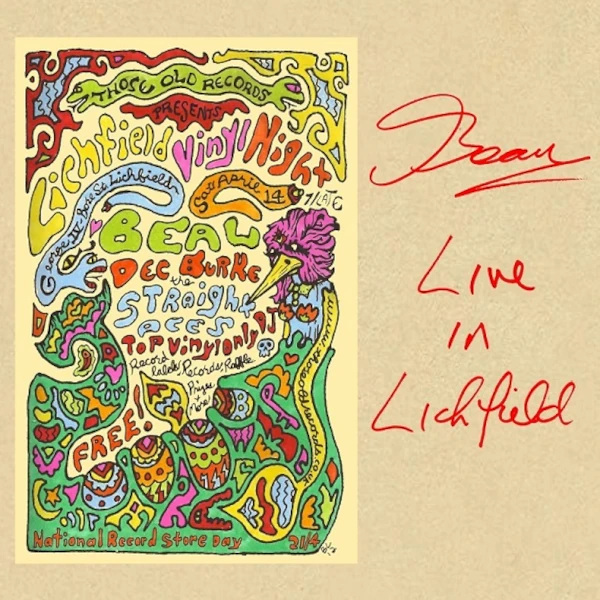 THOSE OLD RECORDS
PRESENTS
Lichfield Vinyl Night
George IV Bore St. Lichfield
Sat April 14
7/LATE
BEAU
DEC BURKE
the
STRAIGHT
ACES
TOP VINYL ONLY DJ
Record
Labels, Records, Raffle
Prizes
+
More!
FREE!
National Record Store Day 21/4
Beau
Live
in
Lichfield